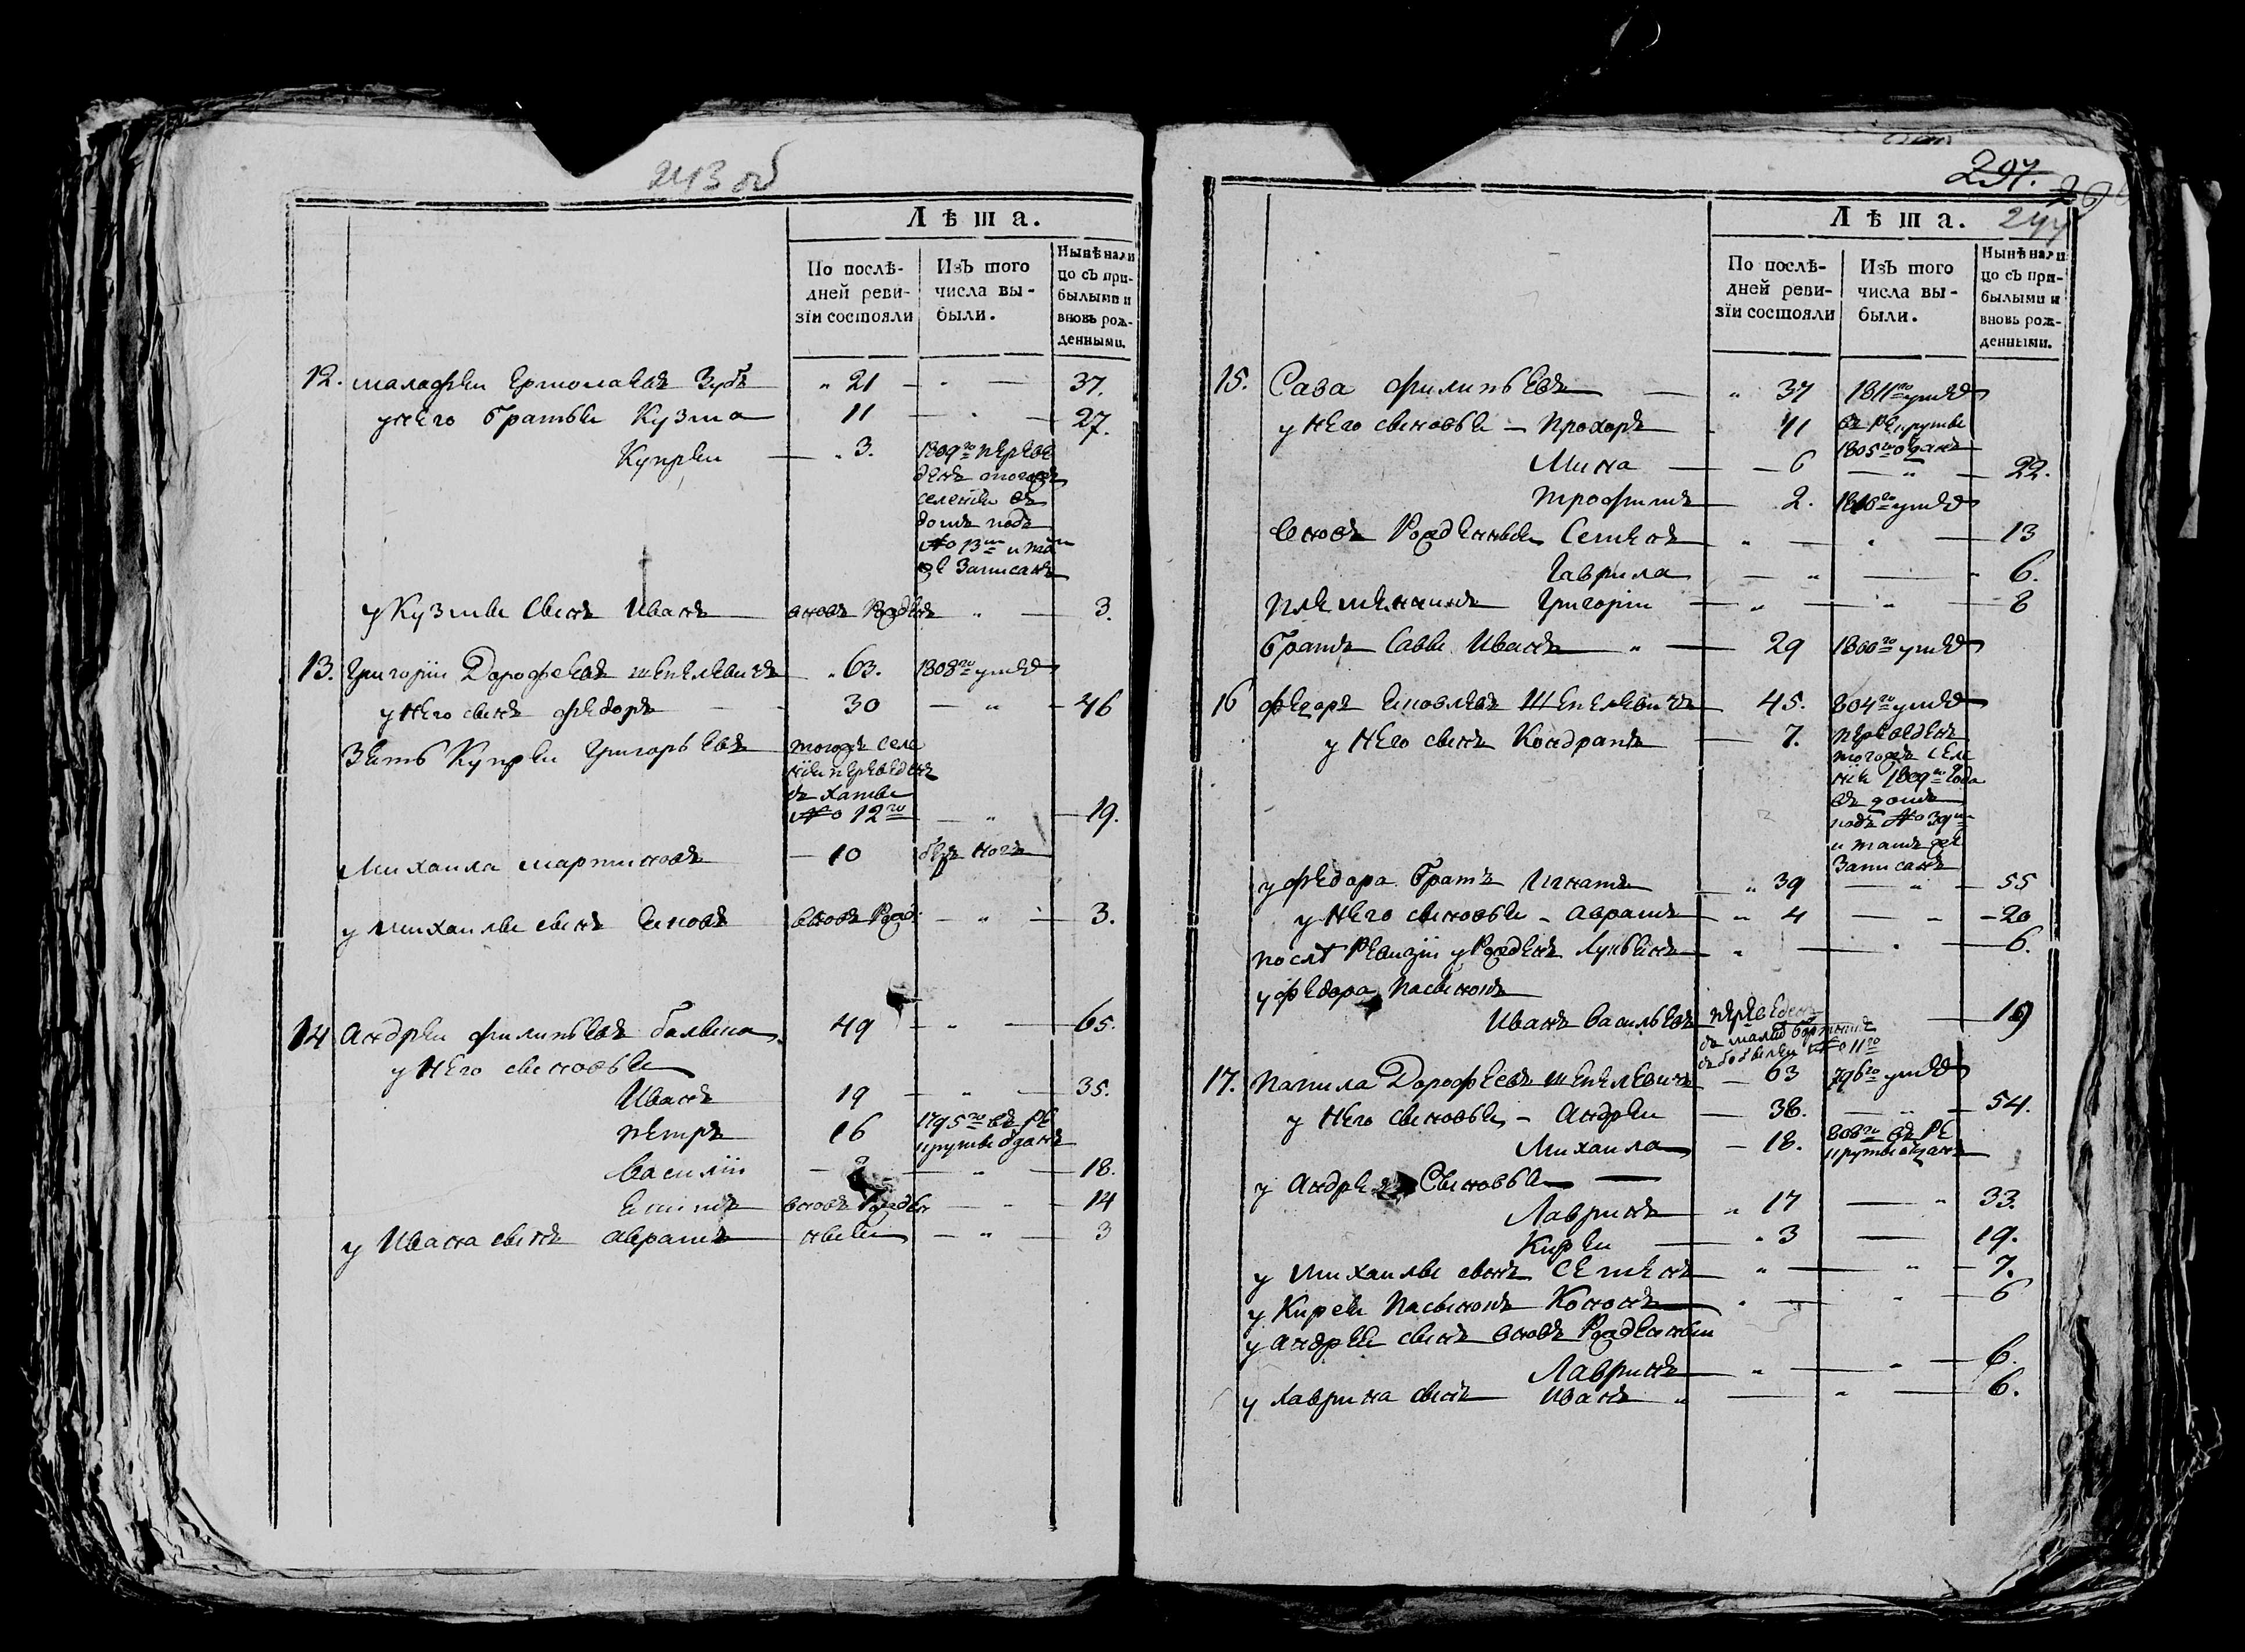 243 об
Лѣта.
По послѣ-
дней реви-
зіи состояли
Изъ того
числа вы-
были.
Нынѣ нали
цо съ при-
былыми и
вновь рож-
денными.
12. малафеи Ермолаевъ Зубъ " 21 — " — 37.
у него братья Кузма 11 — " — 27.
Купреи — " 3. 1809го переве
денъ тогожъ
селения въ
домъ подъ
№ 13м и та
же записанъ
у Кузмы сынъ Иванъ вновь рожденъ " — 3.
13. Григоріи Дорофеевъ шепелевичъ " 63. 1808го умеръ
у него сынъ федоръ — 30 — " — 46
зять Купреи Григорьевъ тогожъ селе
нія переведенъ
съ хаты
№ 12го — " — 19.
Михаила мартиновъ — 10 безъ ногъ
у михаилы сынъ Яковъ вновь рожд: — " — 3.
14 Андреи филиповъ 49 — " — 65.
у него сыновья
Иванъ 19 — " — 35.
петръ 16 1795го въ ре
круты отданъ
Василіи — " — 18.
Якимъ вновь рожден — " — 14
у Ивана сынъ аврамъ ныи — " — 3
297.
244
Лѣта.
По послѣ-
дней реви-
зіи состояли
Изъ того
числа вы-
были.
Нынѣ нали
цо съ при-
былыми и
вновь рож-
денными.
15. Сава филипьевъ — " 37 1811го умеръ
у него сыновья — прохоръ 11 въ рекруты
1805го отданъ
Мина — 6 — " — 22.
трофимъ — 2. 1810го умеръ
вновь рожденныи Семенъ " — " — 13
Гаврила — " — " 6.
племенникъ Григоріи — " — " — 8
братъ Саввы Иванъ " — 29 1800го умеръ
16 федоръ Яковлевъ Шепелевичъ — 45. 804го умеръ
у него сынъ Кондратъ — 7. переведенъ
тогожъ селе
нія 1809го года
въ домъ
подъ № 39м
и тамъ же
записанъ
у федора братъ Игнатъ — " 39 — " — 55
у него сыновья — аврамъ — " 4 — " — 20
послѣ ревизіи урожденъ Лукьянъ " — " — 6.
у федора пасынокъ
Иванъ Васильевъ переведенъ — 19
№ 11го
17. Дорофеевъ шепелевичъ — 63 796го умеръ
у него сыновья — Андреи — 38. — " — 54.
Михаила — 18. 808го въ ре
круты отданъ
у Андрея Сыновья —
Лавринъ " 17 — " 33.
Киреи — " 3 — 19.
у михаилы сынъ семенъ " — " — 7.
у Кирея пасынокъ Кононъ " — " — 6
у андрея сынъ вновь рожденныи
Лавринъ " — " — 6.
у лаврина сынъ Иванъ " — " — 6.